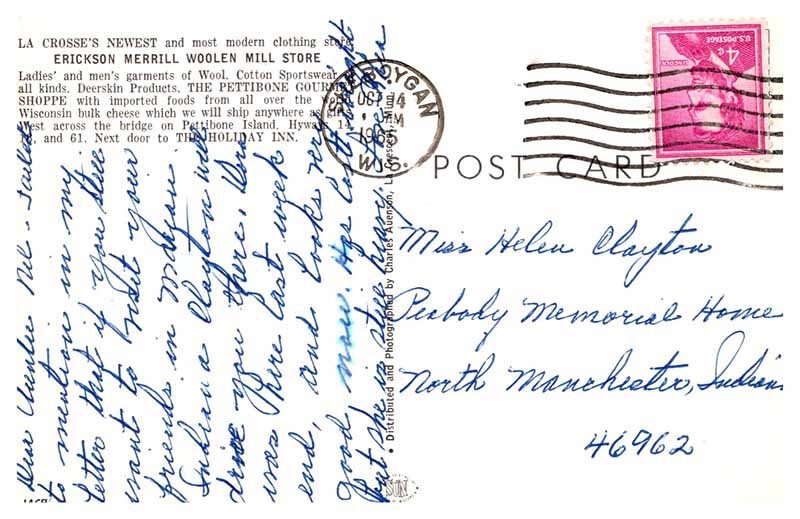 LA CROSSE'S NEWEST and most modern clothing store
ERICKSON MERRILL WOOLEN MILL STORE
Ladies' and men's garments of Wool, Cotton Sportswear
all kinds. Deerskin Products. THE PETTIBONE GOURMET
SHOPPE with imported foods from all over the
Wisconsin bulk cheese which we will ship anywhere as
West across the bridge on Pettibone Island, Hyways 14,
and 61. Next door to THE HOLIDAY INN.
Dear Auntie Nel - Failed
to mention in my
letter that if you still
want to visit your
friends in
Indiana Clayton will
drive you there.
was there last week
end, and looks very
good, now. Has lost weight
but she is still heavy.
• Distributed and Photographed by Charles Auenson, La Crescent, Minn.
SHEBOYGAN
OCT 14
1965
WIS.
U.S. POSTAGE
4¢
POST CARD
Miss Helen Clayton
Peabody Memorial Home
North Manchester, Indiana
46962
SUN